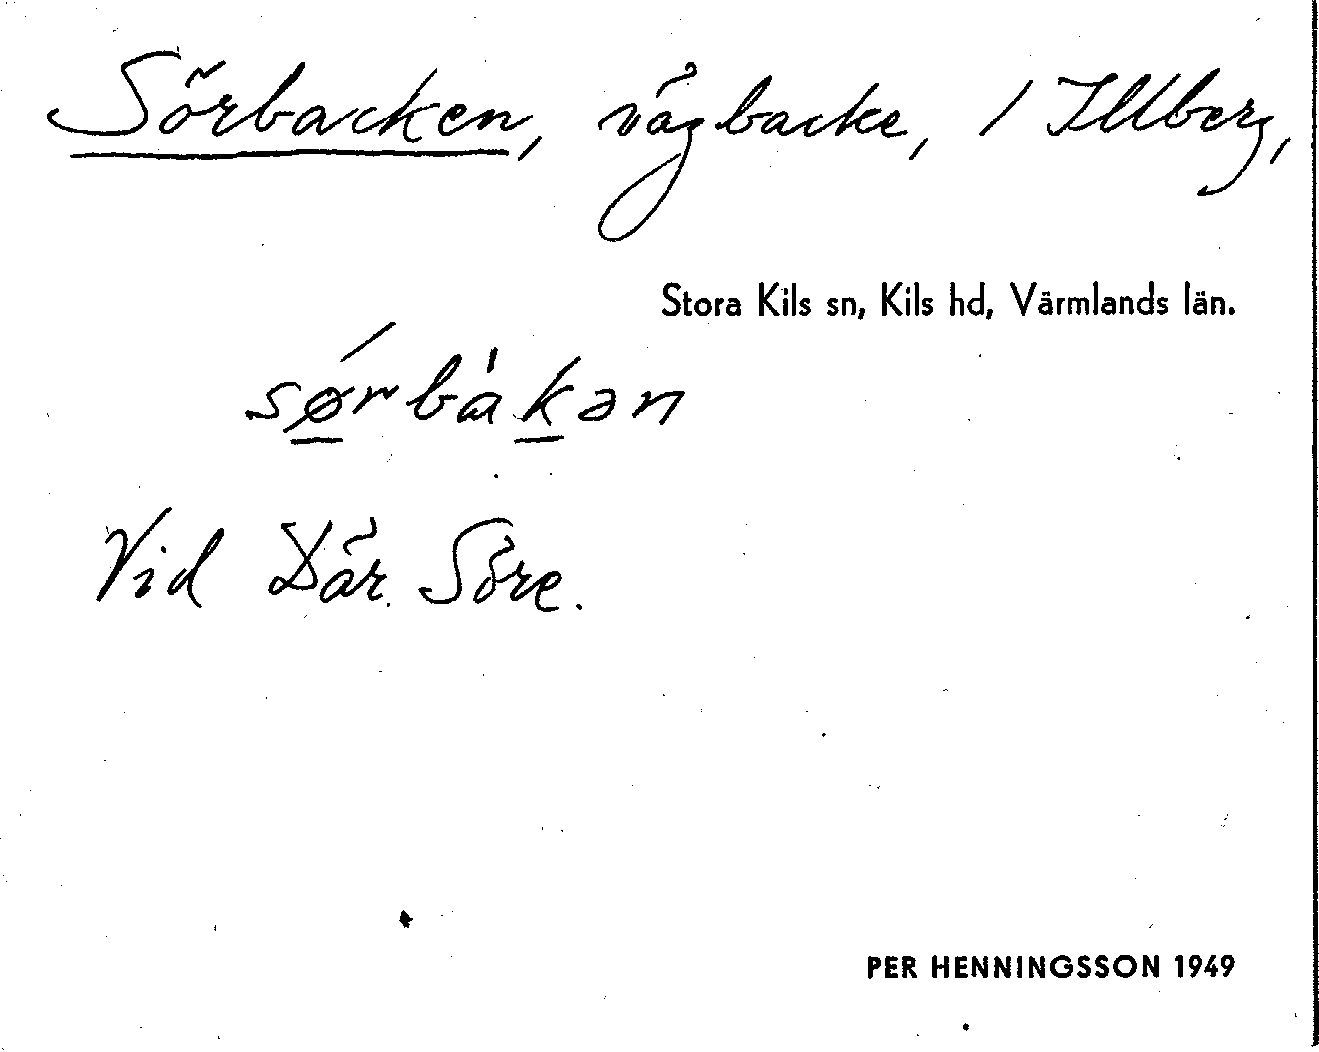 Sörbacken, vägbacke, / Illberg,
Stora Kils sn, Kils hd, Värmlands län.
sǿ̱rbàḵən
Vid Där Söre.
PER HENNINGSSON 1949